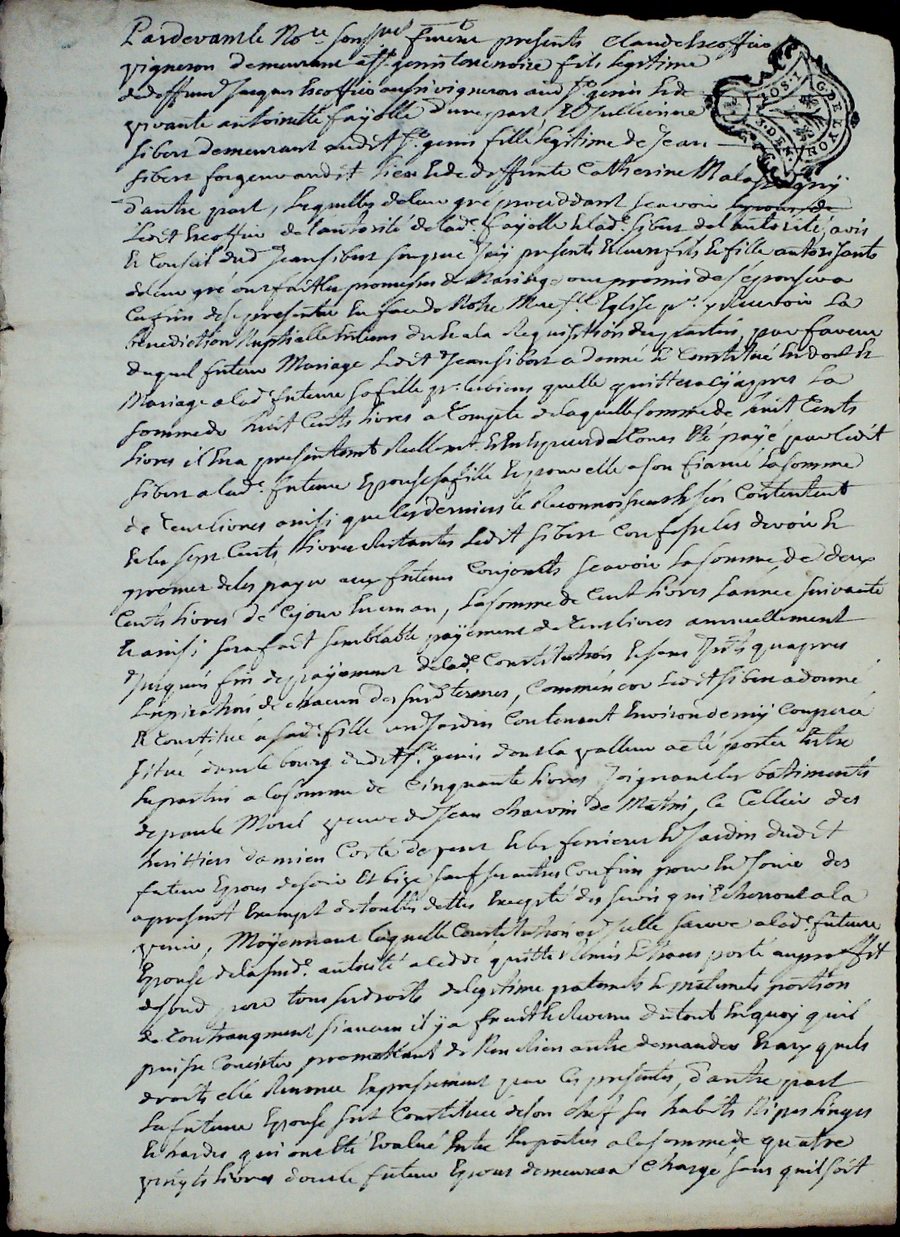 Pardevant le No.re sousné furent presents Claude Escoffier
vigneron demeurant a St genis terrenoire fils legitime
de deffunt Jacques Escoffier aussi vigneron aud. St genis et de
vivante antoinette fayolle d'une part, Et Jullienne
sibert demeurant audit St genis fille legitime de Jean
sibert forgeur audit lieu et de deffunte Catherine
G. DE LYON
POS. I
3. DEN.
d'autre part, Lesquelles de leur gré proceddant scavoir
Ledit Escoffier de l'autorité de lad.e fayolle et lad.e sibert de l'autorité, avis
et Conseil dud.t Jean sibert son pere Icy presents et leurs fils et fille autorisants
de leur gré ont fait les promesses de Mariage
ce fin de se presenter en face de Nostre Mere Ste Eglise pr. y Recevoir La
benediction Nuptialle a la Requisition des parties, par faveur
duquel futeur Mariage Ledit Jean sibert a donné et Constitué en dot et
Mariage a lad.e future sa fille pr. les biens quelle quittera cy apres La
somme de huit Cents livres a Compte de laquelle somme de huit Cents
livres il en a presentement Reellem.t Eté payé par Ledit
sibert a lad.e future Epouse sa fille Et pour elle a son fiancé La somme
de Cent livres ainsi que les derniers le Reconnoissent et s'en Contentent
Et les sept Cents livres Restantes Ledit sibert Confesse les devoir et
promet de les payer aux futurs Conjoints scavoir La somme de deux
Cents livres de Ce jour en un an, La somme de Cent livres L'année suivante
Et ainsi sera fait semblable payement de Cent livres annuellement
Jusques fin de payement de lad.e Constitution Et sans Interets qu'apres
L'expiration de chacun des susd.ts termes, Comme encor Ledit sibert a donné
Et Constitué a sad.e fille un Jardin Contenant Environ demy Couperée
situé dans le bourg dudit St genis dont la valleur a eté portée Entre
les parties a la somme de Cinquante livres Joignant les batiments
de paule Morel veuve de Jean Charvin de Matin, Le Cellier des
heritiers damien Corte de vent et les fenieres et Jardin dudit
futeur Epoux de soir Et bize sauf ses autres Confins pour En Jouir des
apresent Exempt de touttes dettes Excepté des servis qui Echerront a la
venir, Moyennant laquelle Constitution lad.e future
Epouse de la susd.e autorité a Ceddé quitté Remis Et transporté au proffit
de son d. pere tous ses droits de legitime paternels Et maternels portion
de si aucun il y a fruits Et Revenu du tout En quoy qu'il
puisse Consister promettant de Rien autre demander auxquels
droits elle Renonce Expressement par Ces presentes, d'autre part
La future Epouse s'est Constituée de son Chef ses habits Nipes linges
Et hardes qui ont eté Evalué Entre les parties a la somme de quatre
vingts livres dont le futeur Epoux demeurera Chargé sans qu'il soit